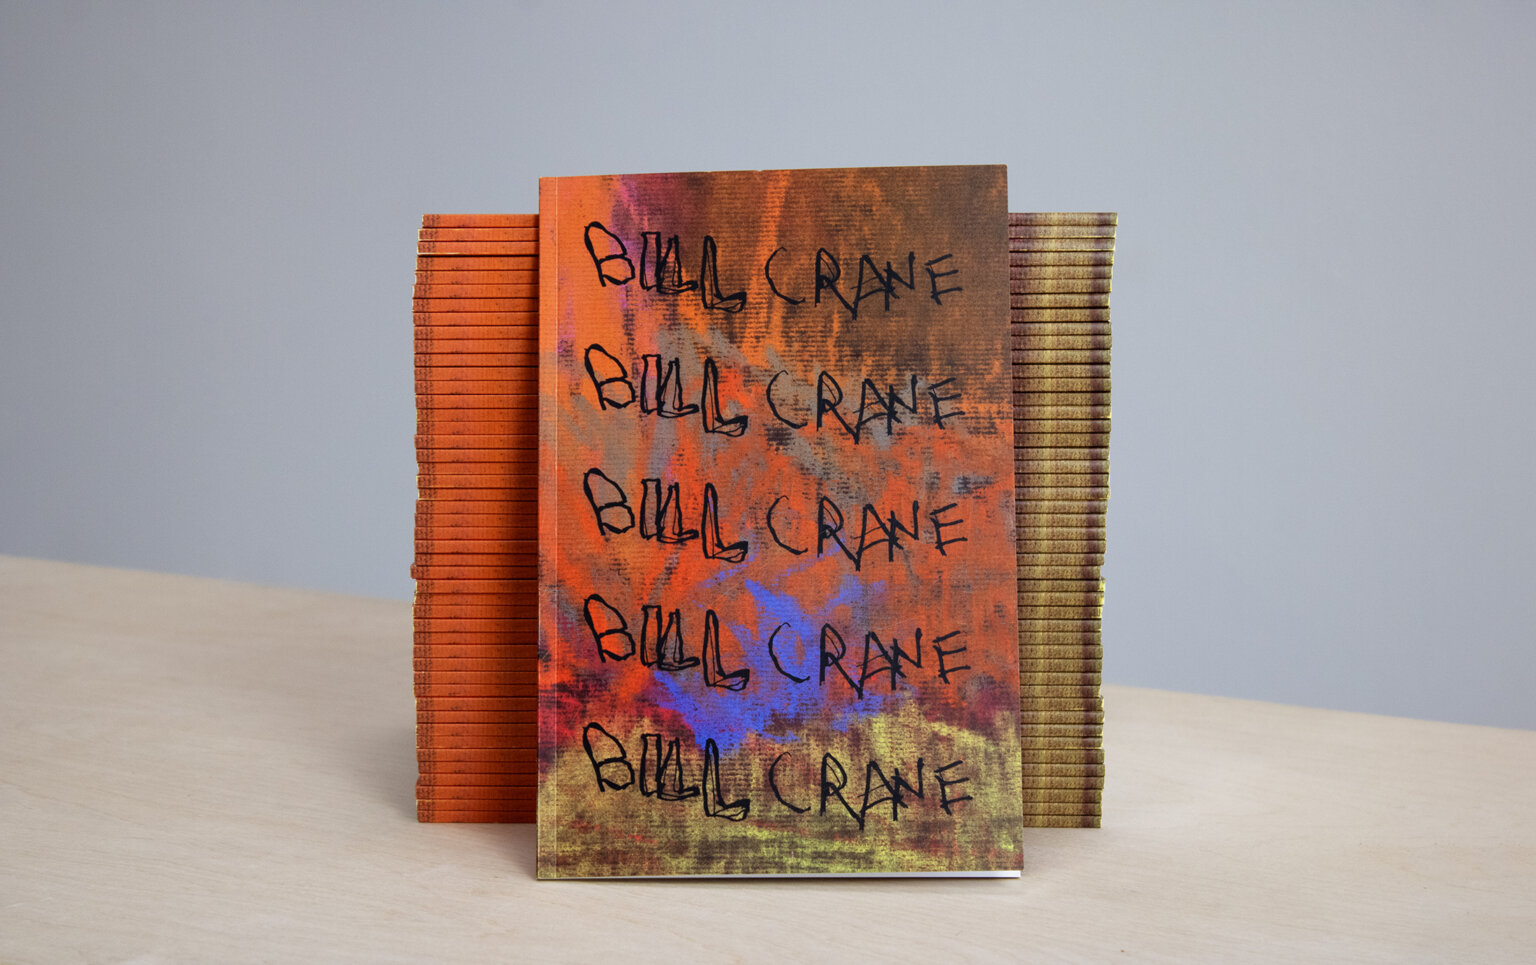 BILL CRANE
BILL CRANE
BILL CRANE
BILL CRANE
BILL CRANE